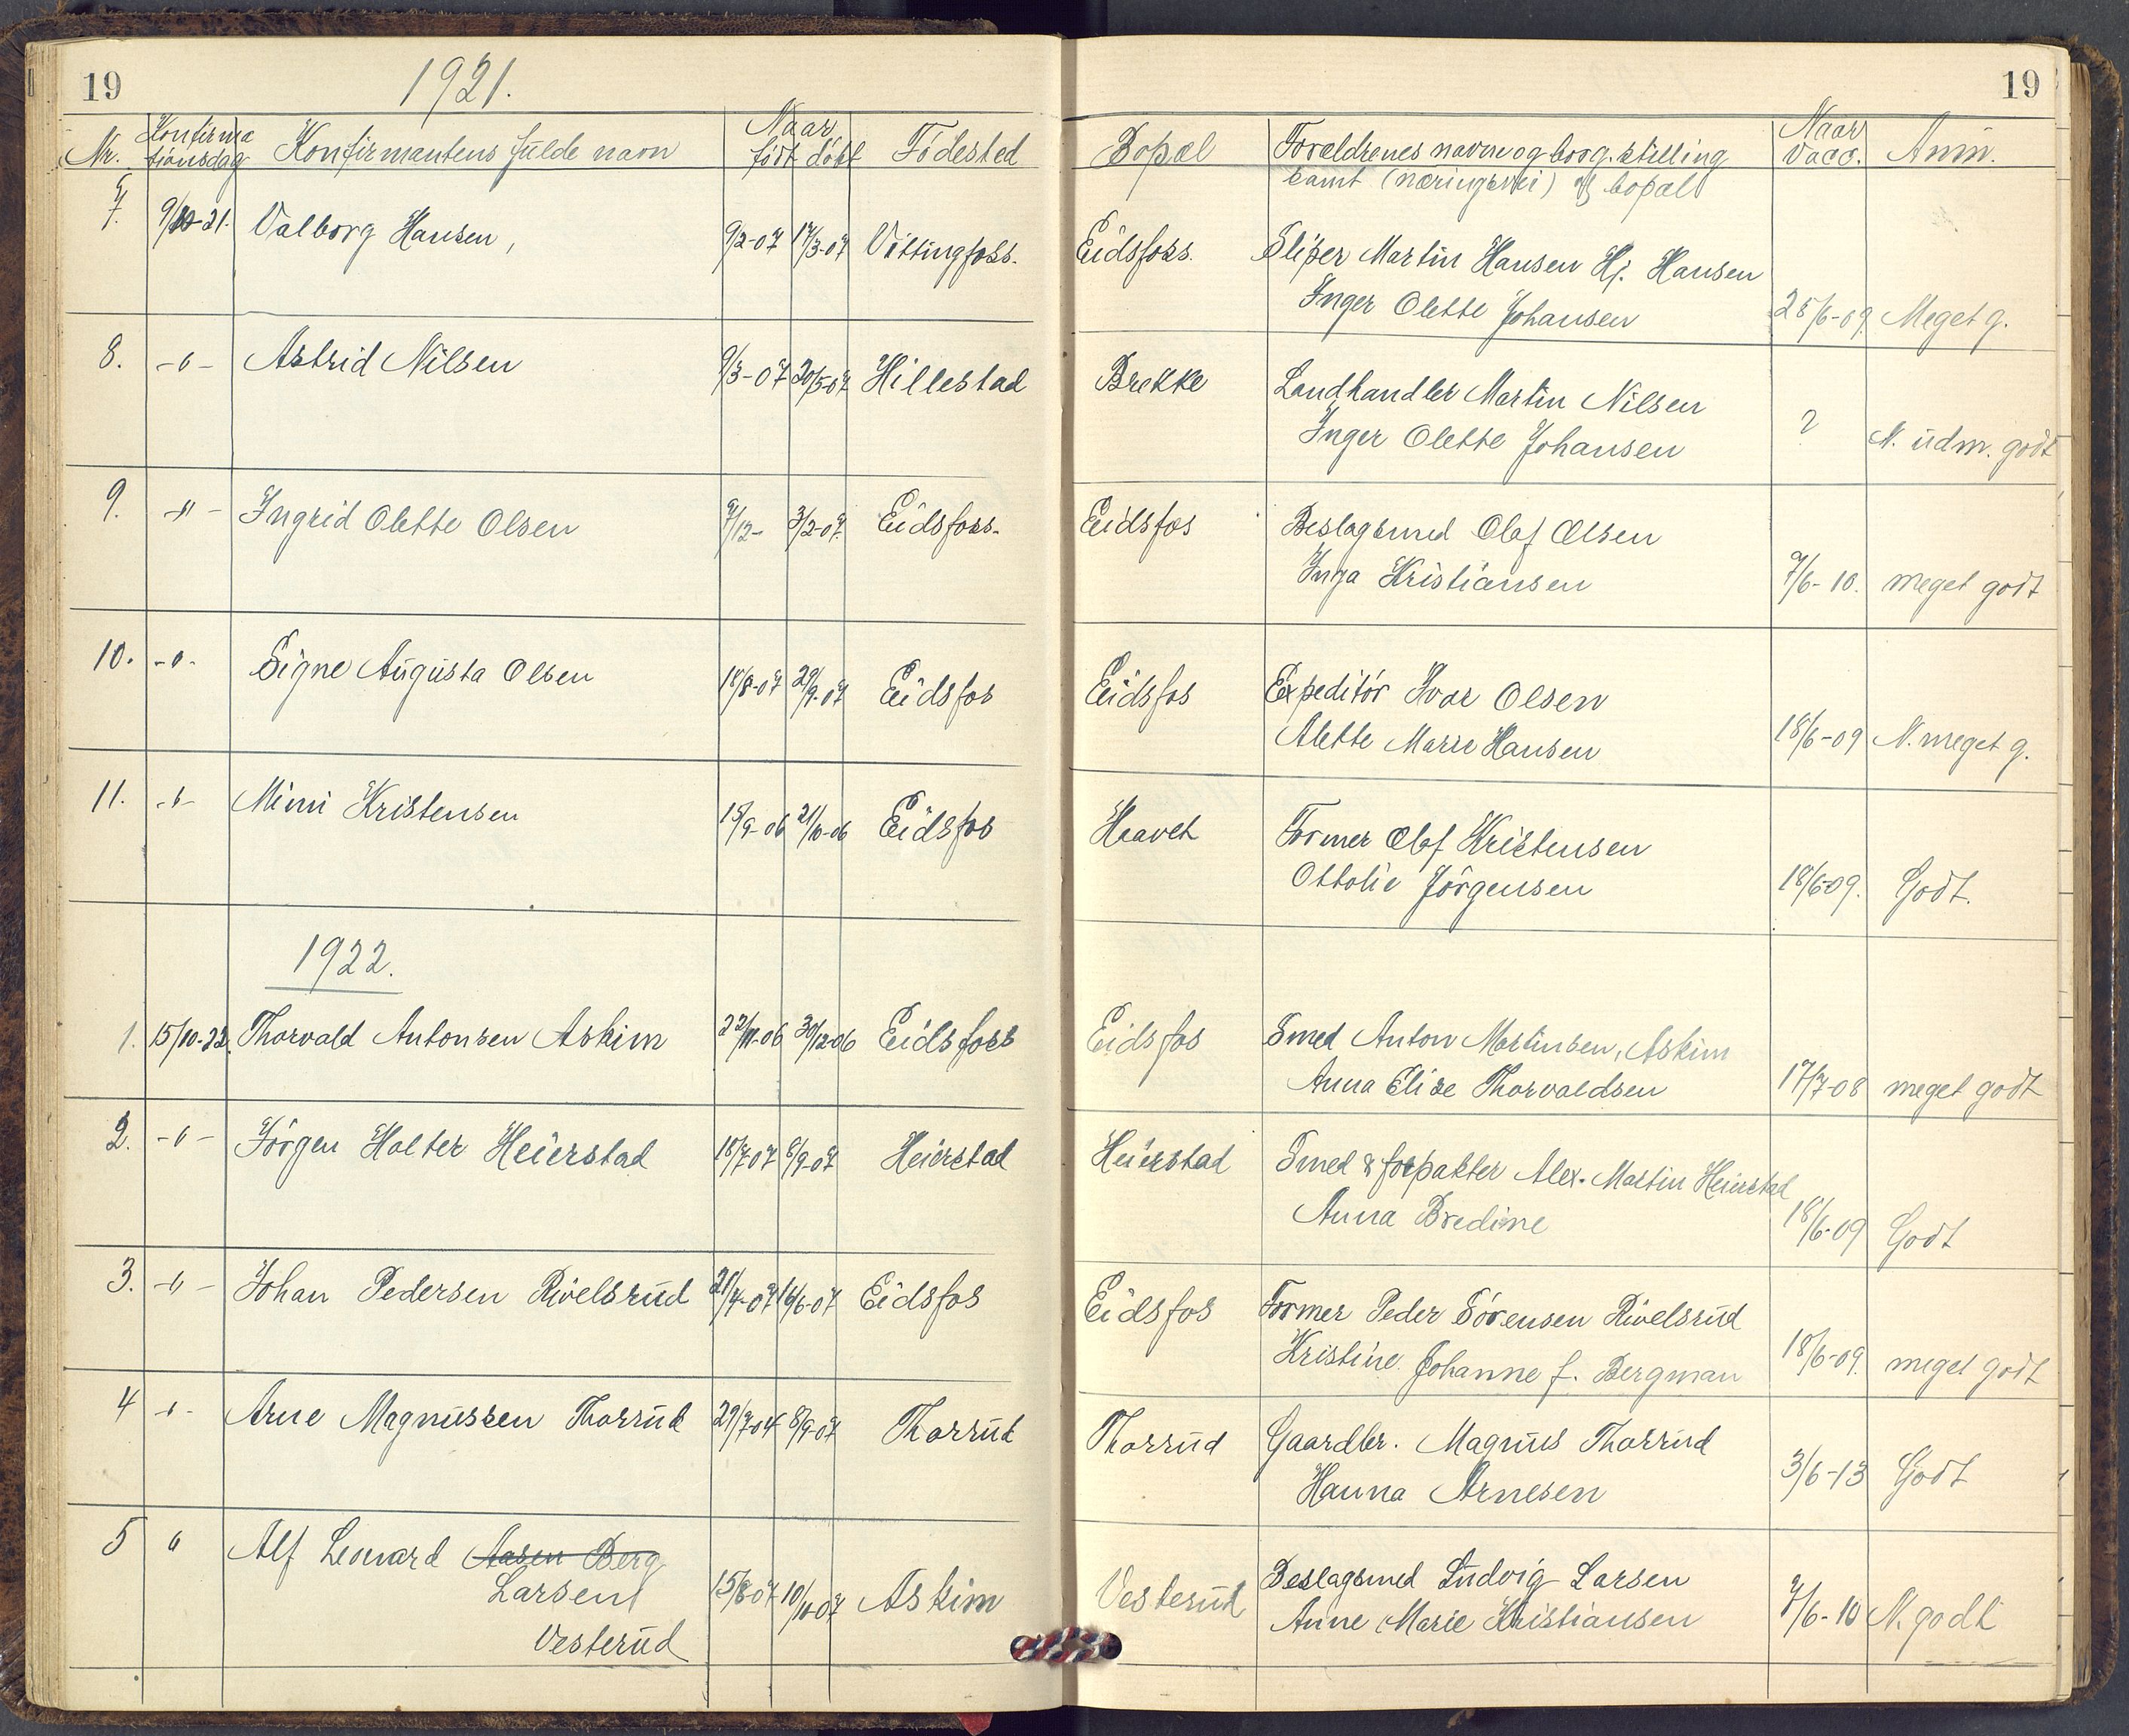 19
1921.
Nr.
Konfirma
tionsdag
Konfirmantens fulde navn
Naar
født døbt
Födested
7.
9/10-21.
Valborg Hansen,
9/2-07
17/3-07
Vittingfoss.
8.
-"-
Astrid Nilsen
9/3-07
20/5-07
Hillestad
9.
-"-
Ingrid Olette Olsen
7/12-
3/2-07.
Eidsfoss.
10.
-"-
Signe Augusta Olsen
18/8-07
29/9-07
Eidsfos
11.
-"-
Mimi Kristensen
15/9-06
21/10-06
Eidsfos
1922.
1.
15/10-22.
Thorvald Antonsen Askim
22/11-06
30/12-06
Eidsfoss
2.
-"-
Jörgen Holter Heierstad
18/7-07
8/9-07
Heierstad
3.
-"-
Johan Pedersen Rivelsrud
21/4-07
16/6-07
Eidsfos
4
-"-
Arne Magnussen Thorrud
29/7-07
8/9-07
Thorrud
5
"
Alf Leonard Aasen Berg
Larsen
Vesterud
15/8-07
10/11-07
Askim
19
Bopæl
Foreldrenes navne og borg. stilling
samt (næringsvei) & bopæl
Naar
Vacc.
Anm.
Eidsfoss.
Sliper Martin Hansen Hj. Hansen
Inger Olette Johansen
25/6-09
Meget g.
Brekke
Landhandler Martin Nilsen
Inger Olette Johansen
?
N. udm. godt
Eidsfos
Beslagsmed Olaf Olsen
Inga Kristiansen
7/6-10.
meget godt
Eidsfos
Expeditör Ivar Olsen
Alette Marie Hansen
18/6-09
N. meget g.
Haavet
Former Olaf Kristensen
Ottolie Jörgensen
18/6-09.
Godt.
Eidsfos
Smed Anton Martinsen, Askim
Anna Elise Thorvaldsen
17/7-08
meget godt
Heierstad
Smed & forpakter Alex. Martin Heierstad
Anna Bredine
18/6-09
Godt
Eidsfos
Former Peder Sörensen Rivelsrud
Kristine Johanne f. Bergman
18/6-09.
meget godt
Thorrud
Gaardbr. Magnus Thorrud
Hanna Arnesen
3/6-13
Godt
Vesterud
Beslagsmed Ludvig Larsen
Anne Marie Kristiansen
7/6-10
N. godt